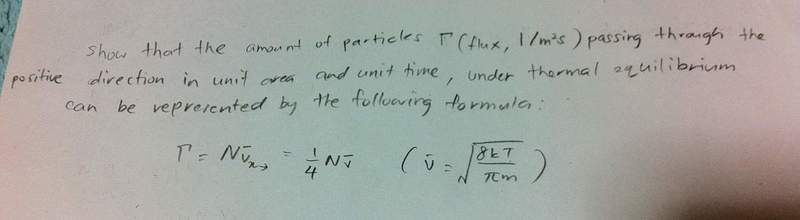 show that the amount of particles Γ (flux, 1/m²s) passing through the
positive direction in unit area and unit time, under thermal equilibrium
can be represented by the following formula:
Γ = Nv̄ₓ→ = 1/4 Nv̄ (v̄ = √(8kT/πm))